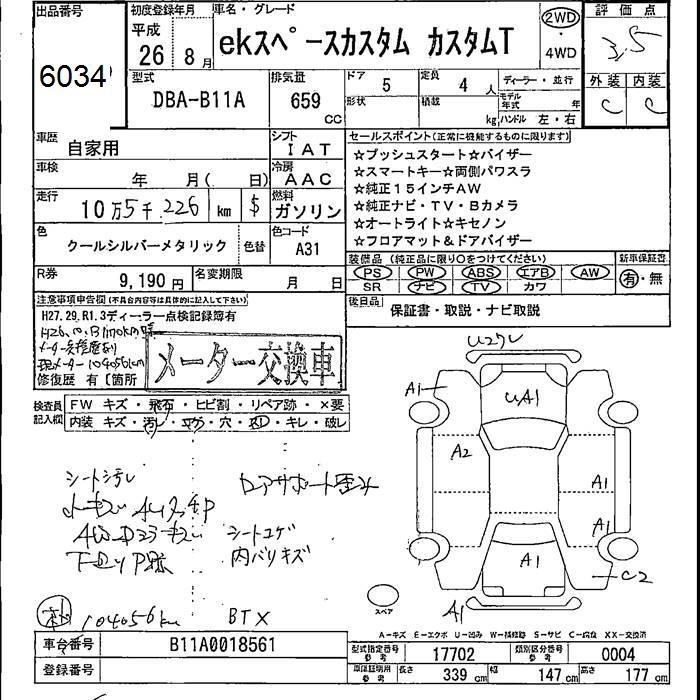 出品番号 初度登録年月 車名・グレード 2WD 評価点
6034 平成 26 8月 ekスペースカスタム カスタムT ・ 4WD 3.5
型式 排気量 ドア 5 定員 4人 ディーラー・並行 外装 内装
DBA-B11A 659 CC 形状 積載 kg モデル年式 年 ハンドル 左・右 C C
車歴 自家用 シフト IAT セールスポイント(正常に機能するものに限ります)
☆プッシュスタート☆バイザー
車検 年 月( 日) 冷房 AAC ☆スマートキー☆両側パワスラ
☆純正15インチAW
走行 10万5千226 km $ 燃料 ガソリン ☆純正ナビ・TV・Bカメラ
☆オートライト☆キセノン
色 クールシルバーメタリック 色替 色コード A31 ☆フロアマット&ドアバイザー
R券 9,190円 名変期限 月 日 装備品(純正品に限り○をつけてください) 新車保証書
PS PW ABS エアB AW 有・無
SR ナビ TV カワ
注意事項申告欄(不具合内容等は具体的に記入して下さい) 後日品 保証書・取説・ナビ取説
H27.29,R1.3ディーラー点検記録簿有
メーター交換車
現メーター104056km
修復歴 有〔箇所
検査員記入欄 FW キズ・飛石・ヒビ割・リペア跡・×要
内装 キズ・汚レ・コゲ・穴・凹・キレ・破レ
U2クレ
A1 UA1
A2 A1
A1
A1 C2
A1
シート汚レ ロアサポート歪み
シートコゲ
内バリキズ
104056km BTX
スペア
A-キズ E-エクボ U-凹み W-補修跡 S-サビ C-腐食 XX-交換済
車台番号 B11A0018561 型式指定番号 参考 17702 類別区分番号 参考 0004
登録番号 車庫証明用 参考 長さ 339 cm 幅 147 cm 高さ 177 cm